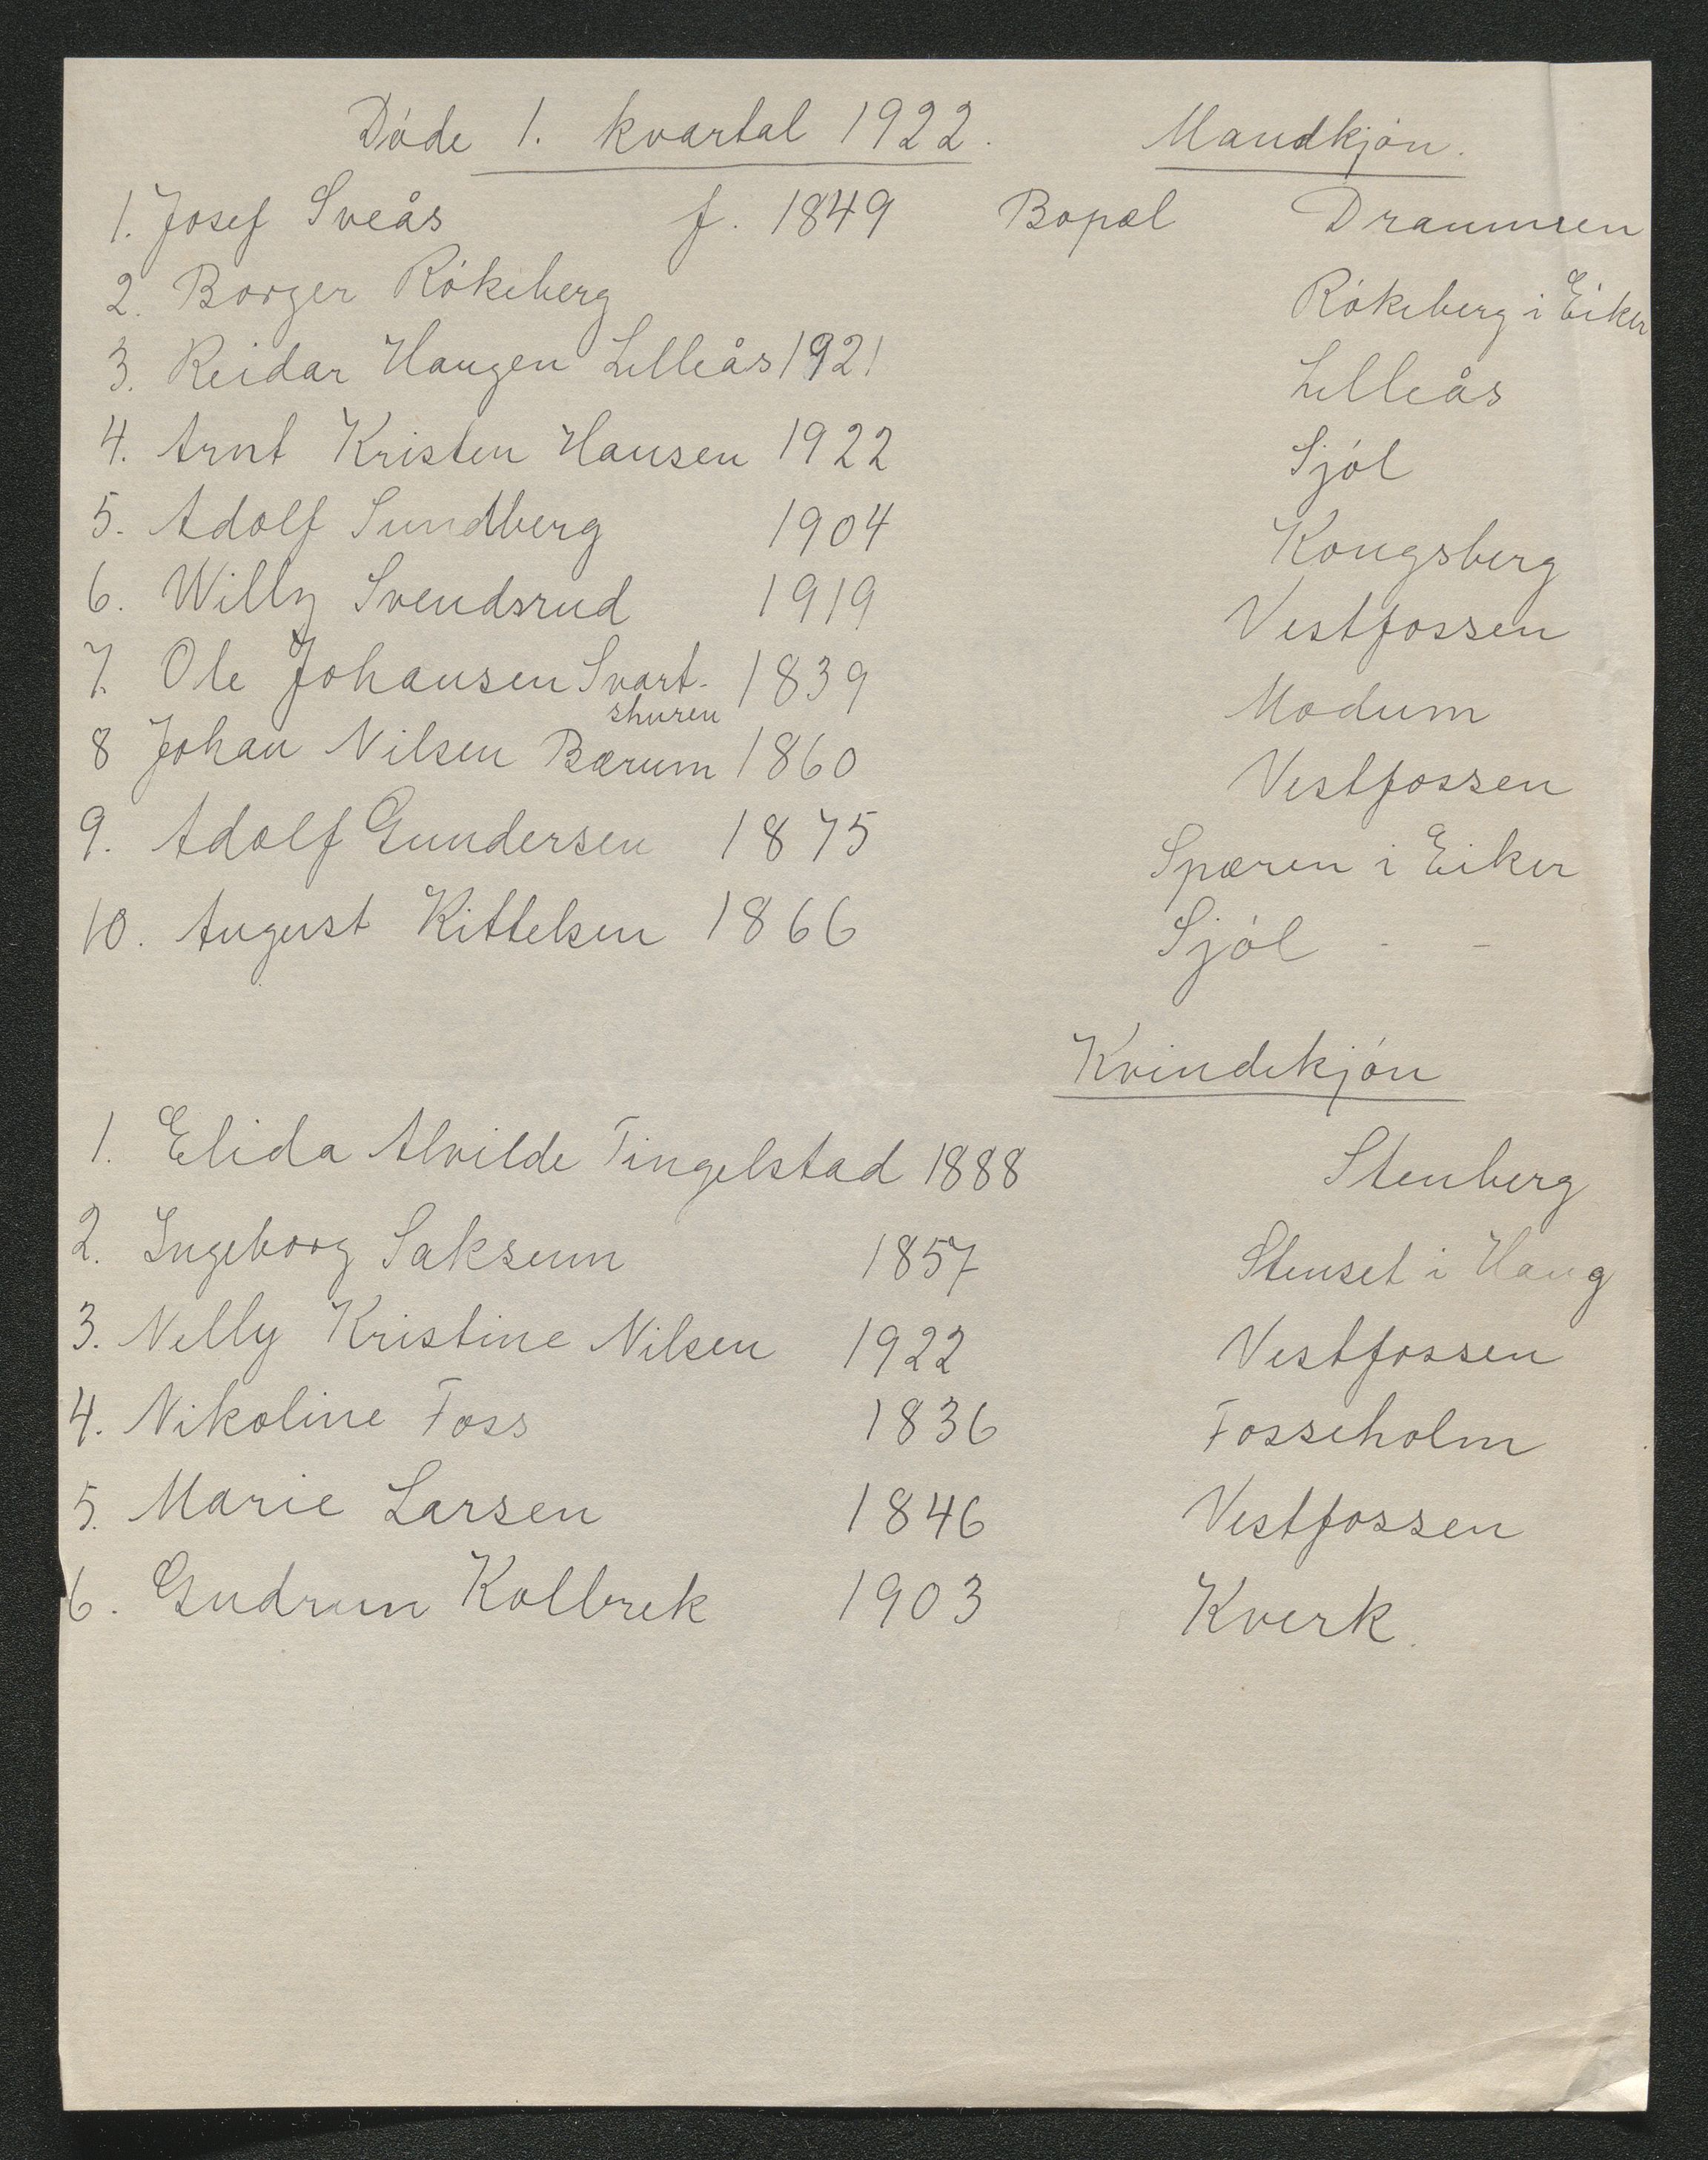 Døde 1. kvartal 1922. Mandkjøn.
1. Josef Sveås f. 1849 Bopæl Drammen
2. Borger Røkeberg Røkeberg i Eiker
3. Reidar Haugen Lilleås 1921 Lilleås
4. Arnt Kristen Hansen 1922 Sjøl
5. Adolf Sundberg 1904 Kongsberg
6. Willy Svendsrud 1919 Vestfossen
7. Ole Johansen Svart- 1839 Modum
shuren
8 Johan Nilsen Bærum 1860 Vestfossen
9. Adolf Gundersen 1875 Spæren i Eiker
10. August Kittelsen 1866 Sjøl - -
Kvindekjøn
1. Elida Alvilde Tingelstad 1888 Stenberg
2. Ingeborg Saksum 1857 Stenset i Haug
3. Nelly Kristine Nilsen 1922 Vestfossen
4. Nikoline Foss 1836 Fosseholm
5. Marie Larsen 1846 Vestfossen
6. Gudrun Kolbrek 1903 Kverk.